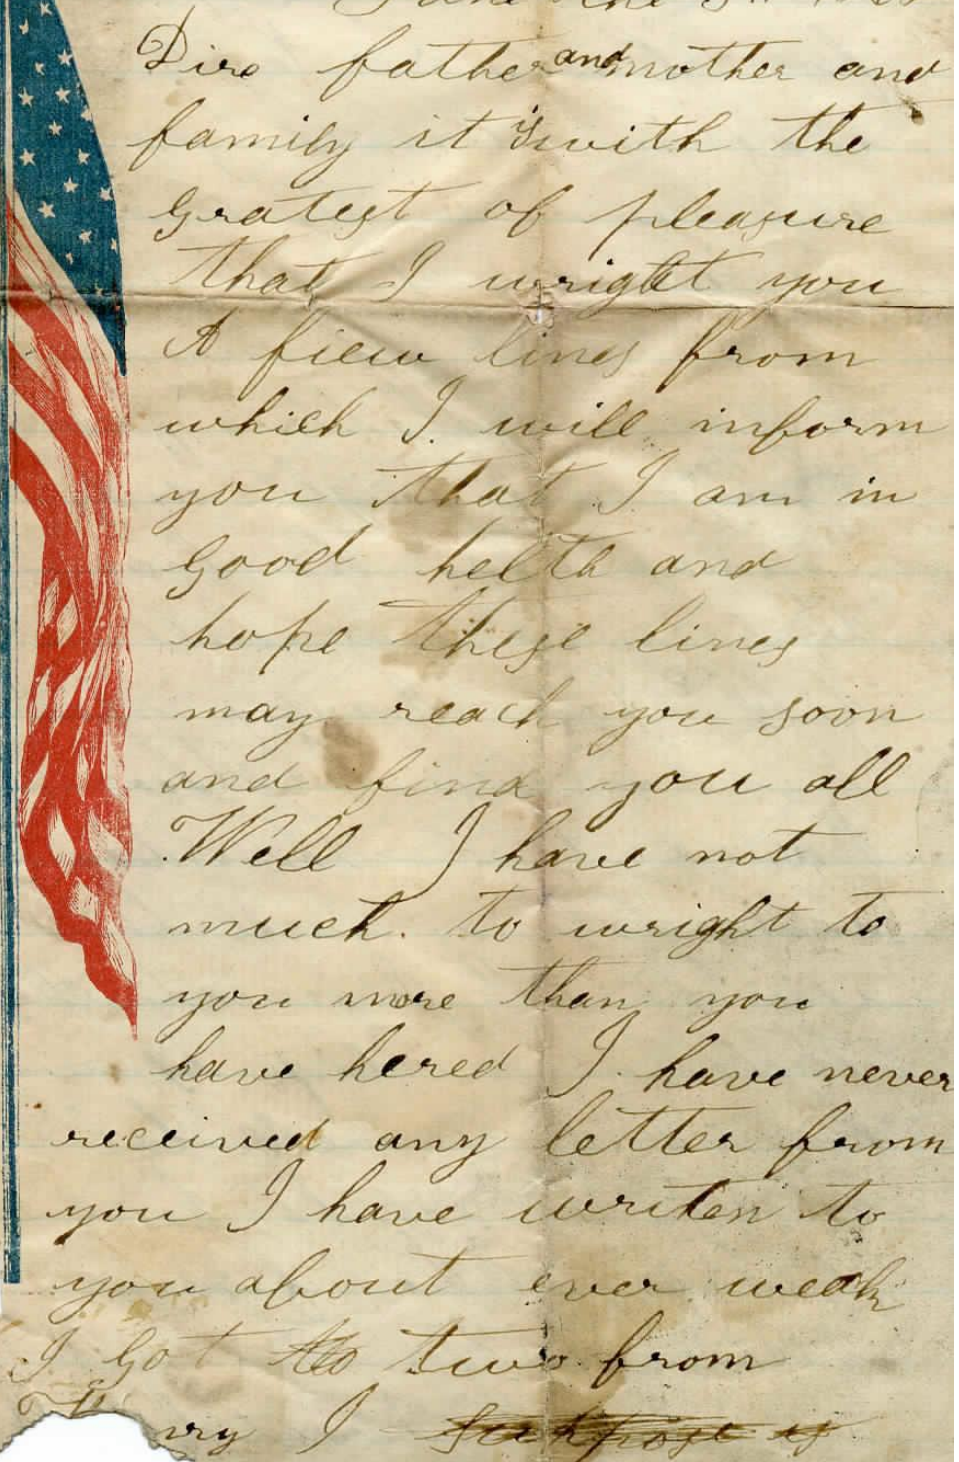 June the
Dire father and mother and
family it is with the
gratest of pleasure
that I wright you
A fiew lines from
which I will inform
you that I am in
good helth and
hope these lines
may reach you soon
and find you all
Well I have not
much to wright to
you more than you
have hered I have never
received any letter from
you I have writen to
you about ever weak
I got to two from
I suhpose is